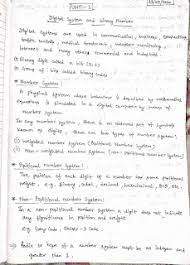 UNIT-1
Digital System and Binary Number
Digital systems are used in communication, business,
traffic control, medical treatment, weather monitoring,
internet and many other commercial and industrial
Binary digit called a bit (0, 1)
Group of bits called binary codes
* Number System:
A physical system whose behaviour is described by mathematical
equations is simulated in a digital computer by means of
number system.
In any number system, there is an ordered set of symbols
known as digits. There are two types of number system:-
(i) weighted number system (Positional Number System)
(ii) non weighted number system (non-positional number system)
* Positional Number System:
The position of each digit of a number has some positional
weight. e.g. binary, octal, decimal, hexadecimal, BCD, etc.
* Non-Positional Number System:
In a non-positional number system a digit does not indicate
any significance in position and weight.
e.g. Gray Code, Excess-3 Code.
of a number system must be an integer and
greater than 1.